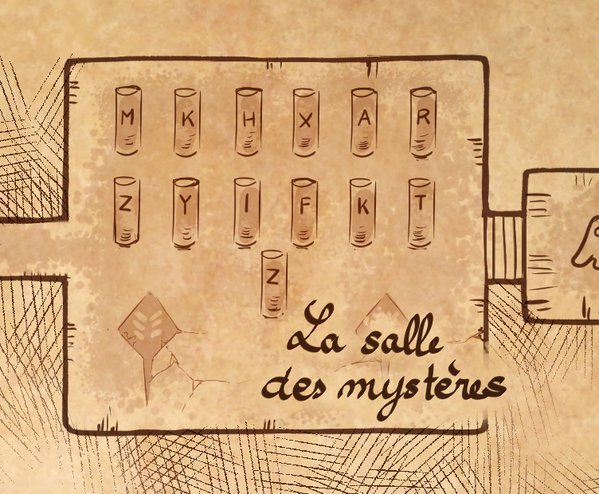 M K H X A R
Z Y I F K T
Z
La salle
des mystères